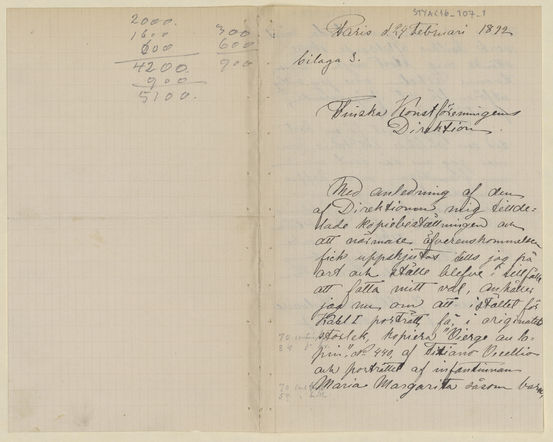 2000.
1600
600
4200.
900
5100.
300
600
900
STYAC16_107_1
Paris d. 24 Februari 1892
bilaga 3.
Finska Konstföreningens
Direktion.
Med anledning af den
af Direktionen mig tillde-
lade kopiebeställningen
att närmare öfverenskommelse
fick uppskjutas tills jag på
ort och ställe blefve i tillfälle
att fatta mitt val, anhåller
jag nu om att istället för
Karl I porträtt få, i originalets
storlek, kopiera "Vierge au la-
pin", No 440, af Tiziano Vecellio
och porträttet af infantinnan
Maria Margarita såsom barn,
70